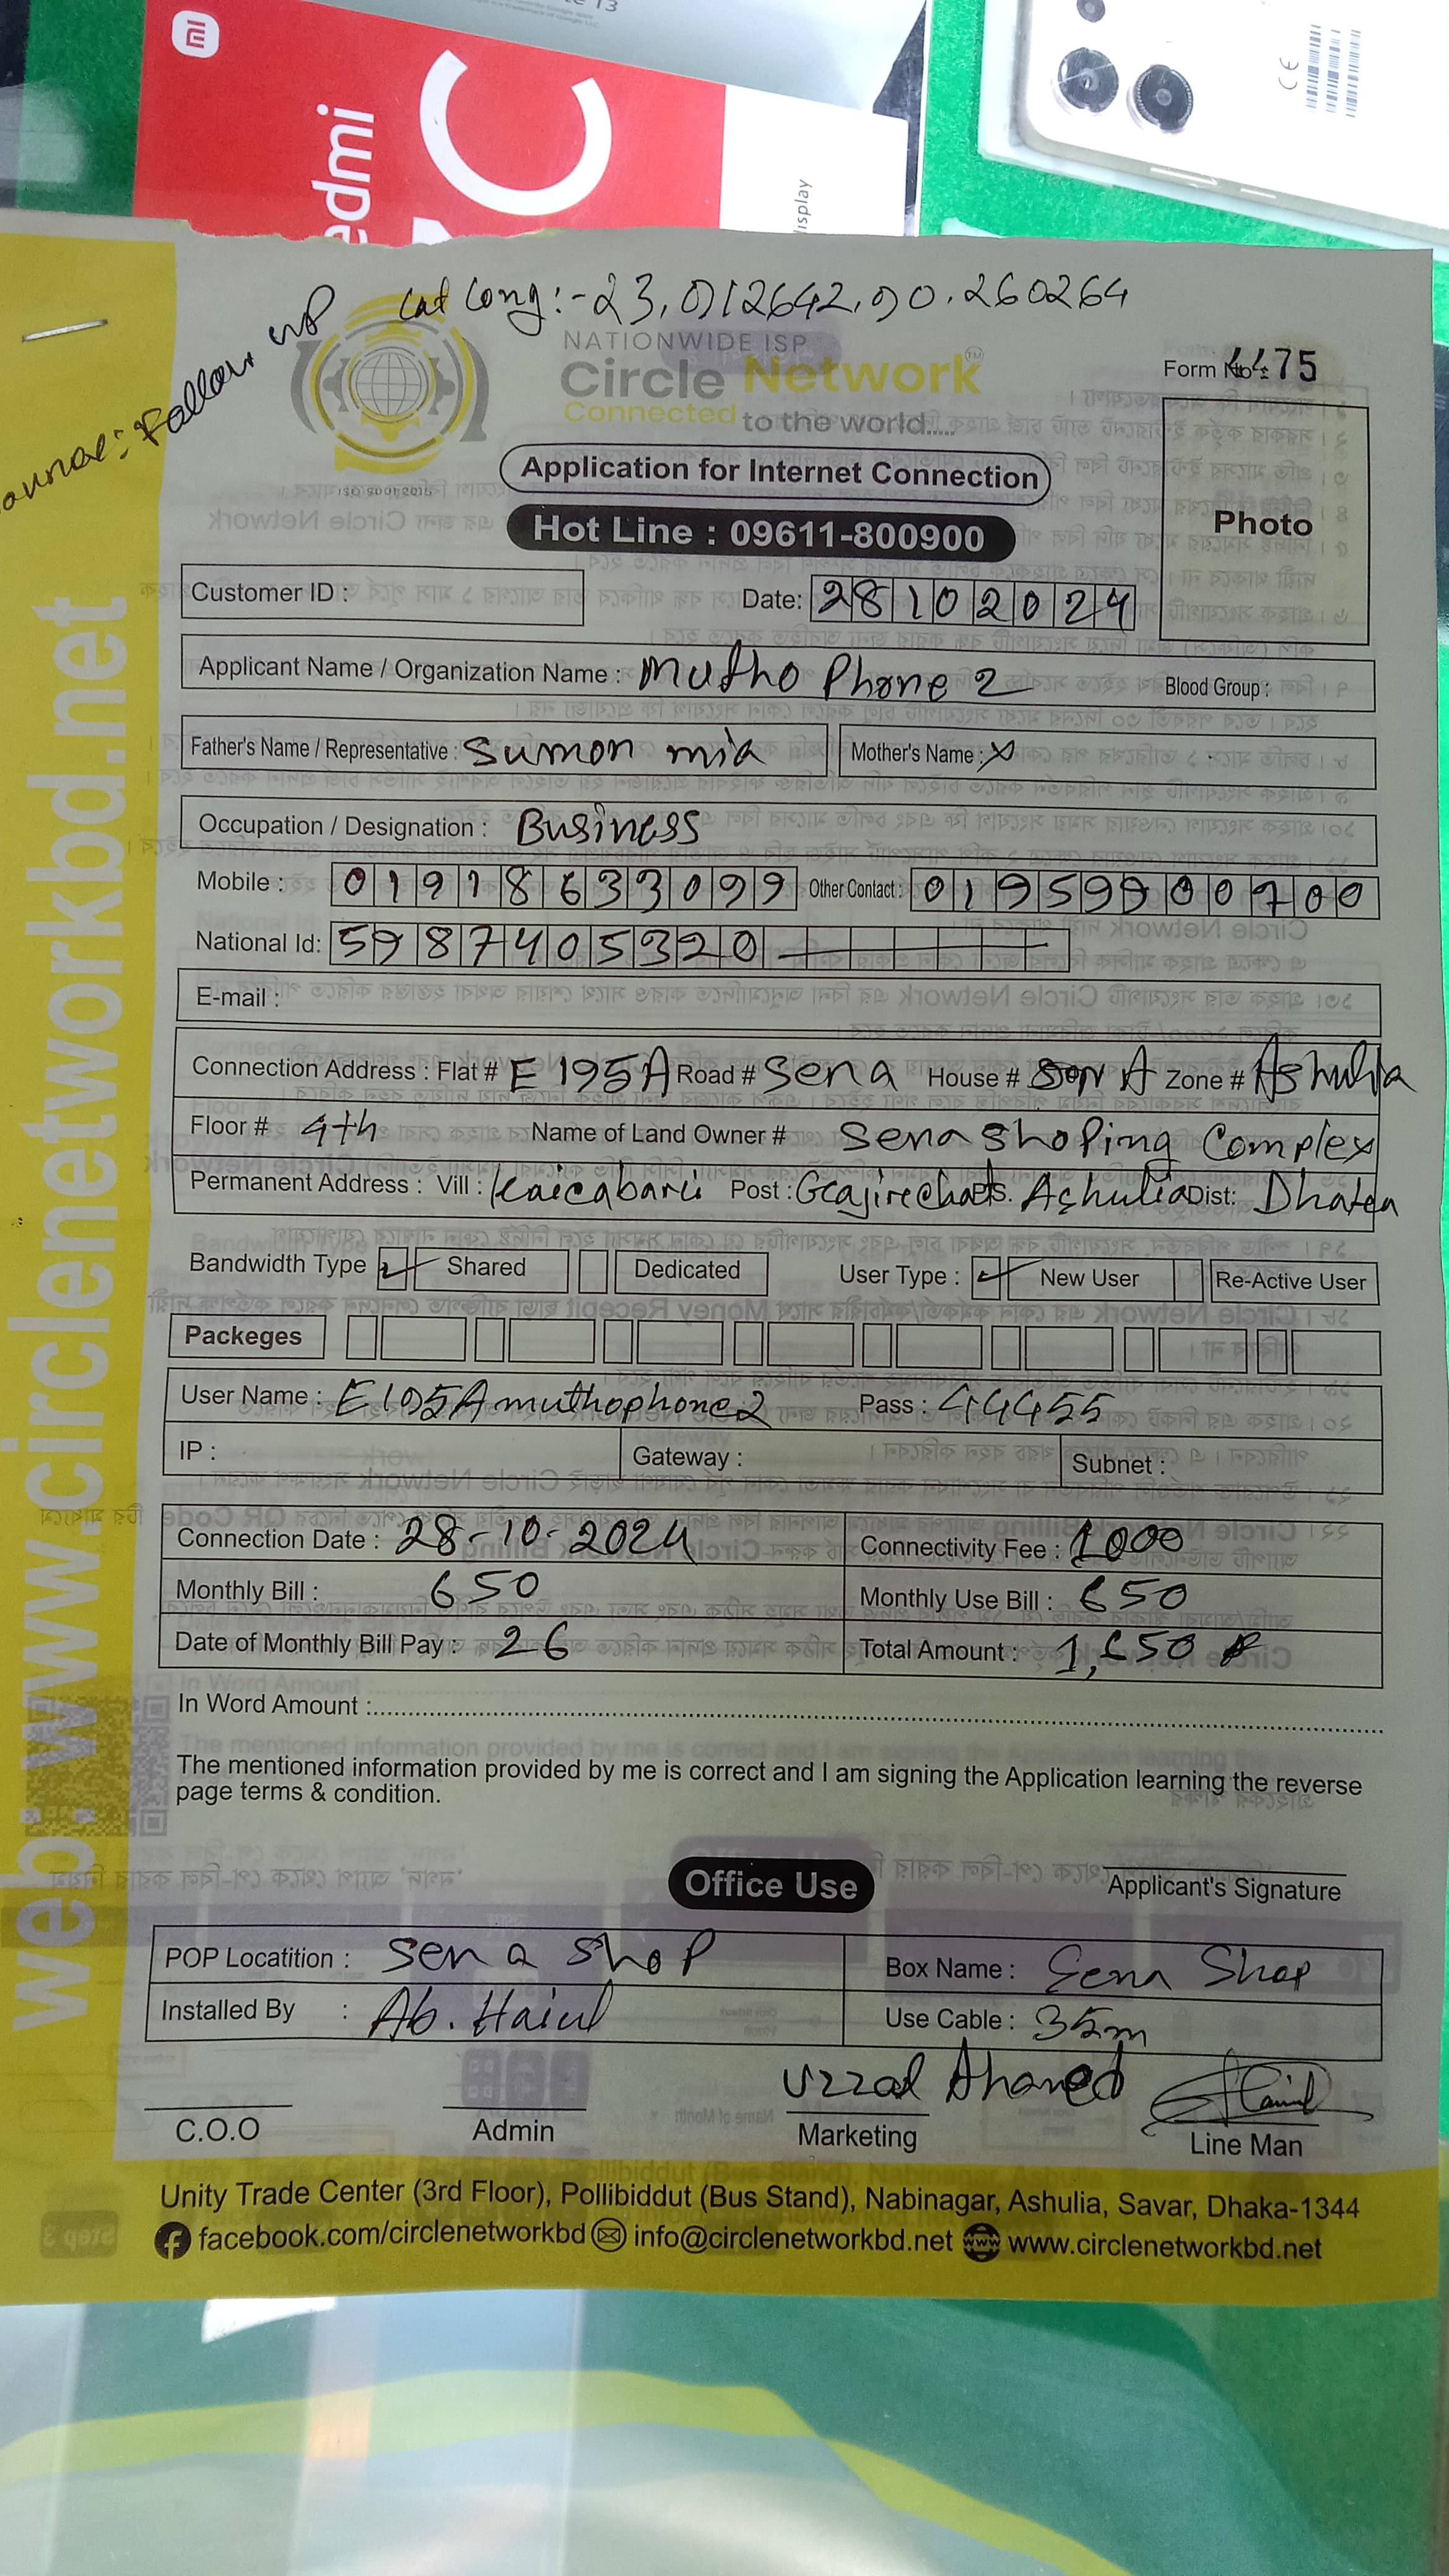 mi
edmi
C
isplay
CE
Lat Long:-23.012642,90.260264
Follow up
NATIONWIDE ISP
Circle Network TM
Connected to the world.....
ISO 9001:2015
Form No : 4475
Application for Internet Connection
Photo
Hot Line : 09611-800900
Customer ID :
Date: 28102024
Applicant Name / Organization Name : Mutho Phone 2 Blood Group :
Father's Name / Representative : Sumon mia Mother's Name : X
Occupation / Designation : Business
Mobile : 01918633099 Other Contact : 01959900700
National Id: 5987405320
E-mail :
Connection Address : Flat # E 195A Road # Sena House # A Zone # Ashulia
Floor # 4th Name of Land Owner # Sena shoping Complex
Permanent Address : Vill : Kaicabari Post : P.s. Ashulia Dist: Dhaka
Bandwidth Type ✓ Shared Dedicated User Type : ✓ New User Re-Active User
Packeges
User Name : E195Amuthophone2 Pass : 44455
IP : Gateway : Subnet :
Connection Date : 28-10-2024 Connectivity Fee : 1000
Monthly Bill : 650 Monthly Use Bill : 650
Date of Monthly Bill Pay : 26 Total Amount : 1,650
In Word Amount :
The mentioned information provided by me is correct and I am signing the Application learning the reverse
page terms & condition.
Office Use
Applicant's Signature
POP Locatition : Sena shop Box Name : Sena Shop
Installed By : Ab. Haiul Use Cable : 35m
Uzzal Ahamed
C.O.O Admin Marketing Line Man
Unity Trade Center (3rd Floor), Pollibiddut (Bus Stand), Nabinagar, Ashulia, Savar, Dhaka-1344
facebook.com/circlenetworkbd info@circlenetworkbd.net www www.circlenetworkbd.net
web: www.circlenetworkbd.net